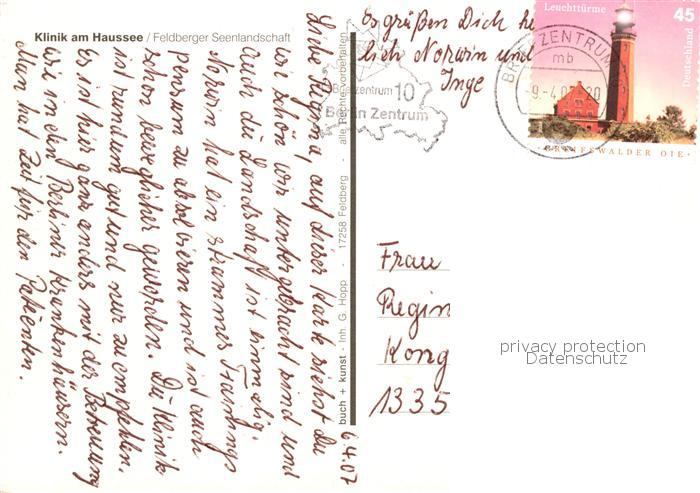 Klinik am Haussee / Feldberger Seenlandschaft
6.4.07
Liebe Regina, auf dieser Karte siehst Du
wie schön wir untergebracht sind und
auch die Landschaft ist einmalig.
Norwin hat ein strammes Trainings
pensum zu absolvieren und ist auch
schon beweglicher geworden. Die Klinik
ist rundum gut und nur zu empfehlen.
Es ist hier ganz anders mit der Betreuung
wie in den Berliner Krankenhäusern.
Man hat Zeit für den Patienten.
Es grüßen Dich he
lich Norwin und
Inge
buch + kunst - Inh. G. Hopp - 17258 Feldberg - alle Rechte vorbehalten
Briefzentrum 10
Berlin Zentrum
ZENTRUM
mb
-9.-4.07
20
Leuchttürme
45
Deutschland
GREIFSWALDER OIE
Frau
Regin
Kong
1335
privacy protection
Datenschutz